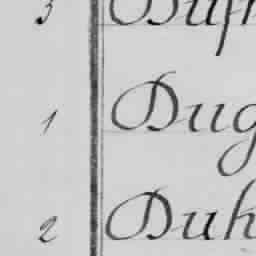 3 Duf
1 Dug
2 Duh